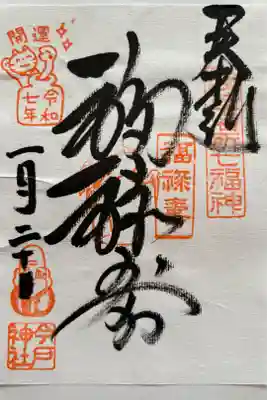 奉拝
七福神
福禄寿
福禄壽
開運
令和
七年
一月二十
今戸
神社